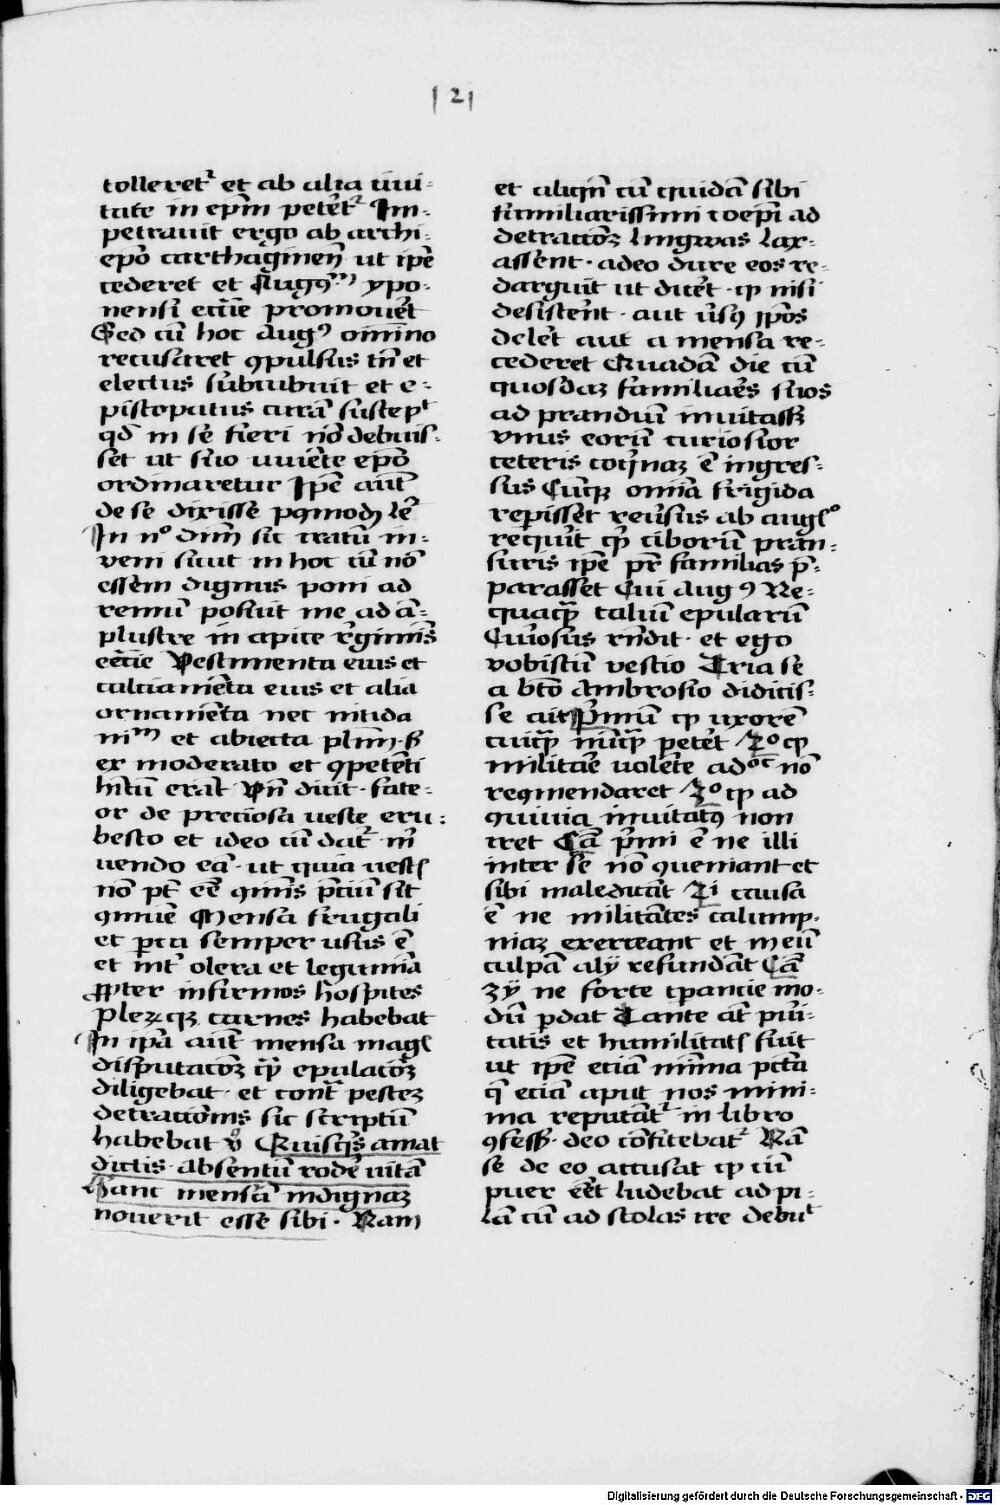 121
tolleret᷑ et ab alia ciui-
tate in ep̄m petēt᷑ Im-
petrauit ergo ab archi-
ep̄o carthaginen̄ ut ip̄e
cederet et Augꝯᵐ ypo-
nensi eccīe promouēt
Sed cū hoc Augꝯ omnino
recusaret ꝯpulsus tn̄ et
electus subcubuit et e-
piscopatus curā suscep̄t
qd̄ in se fieri nō debuis-
set ut suo uiuēte ep̄o
ordinaretur Ip̄e aūt
de se dixisse ꝑqmodꝫ le᷑
In nᵒ dn̄m sic iratū in-
veni sicut in hoc cū nō
essem dignus poni ad
remū posuit me ad ā-
plustre in apice rēgiminis
eccīe Vestimenta eius et
calciamēta eius et alia
ornamēta nec nitida
niᵐ et abiecta plm̄. s̄
ex moderato et ꝯpetēti
hītu erāt Vn̄ dicit. fate-
or de preciosa ueste eru-
besco et ideo cū dat᷑ m̄
uendo eā. ut quia uestꝭ
nō pt̄ eē qmīs p̄ciū sit
qmuīe Mensa frugali
et ꝑca semper usus ē
et int̄ olera et legumīa
ꝓpter infirmos hospites
plerꝫqꝫ carnes habebat
In ipā aūt mensa magꝭ
disputacōꝫ qꝫ epulacōꝫ
diligebat. et cont᷑ pestez
detractiōnis sic scriptū
habebat ꝟᵒ Quisqꝭ amat
dictis absentū roder̄ uitā
Hanc mensā indignaꝫ
nouerit esse sibi. Nam
et aliqn̄ cū quidā sibi
familiarissimi coep̄i ad
detractōꝫ lingwas lax-
assent. adeo dure eos re-
darguit ut dicēt. qꝫ nisi
desistēnt. aut ūsꝰ ip̄os
delēt aut a mensa re-
cederet Quadā die cū
quosdaꝫ familiaēs suos
ad prandiū inuitassꝫ
vnus eorū curiosior
ceteris coq̄naꝫ ē ingres-
sus Cūqꝫ omīa frigida
repisset reūsus ab augꝰ
requūt qꝫ ciborū pran-
suris ip̄e pr̄ familias p̄-
parasset Cui Augꝯ Ne-
quaqꝫ taliū epularū
Cūiosus rn̄dit. et ego
vobiscū vescio Tria se
a bt̄o Ambrosio didicis-
se ait Pꝛimū qꝫ uxorē
cuiqꝫ nūqꝫ petēt 2ᵒ qꝫ
militāe uolēte adᵒᶜ nō
reqmendaret 3ᵒ qꝫ ad
quiuia inuitatꝰ non
iret Cā pꝛimi ē ne illi
inter se nō queniant et
sibi maledicāt 2ⁱ causa
ē ne militātes calump-
niaꝫ exerceant et in eiū
culpā alij refundāt Cā
3ij ne forte tꝑancie mo-
dū ꝑdat Tante āt pūi-
tatis et humilitatꝭ fuit
ut ip̄e eciā mīma pctā
q̄ eciā aput nos mini-
ma reputāt᷑ in libro
ꝯfess̄. deo cōfitebat᷑ Nā
se de eo accusat qꝫ cū
puer eēt ludebat ad pi-
lā cū ad scolas ire debut᷑
Digitalisierung gefördert durch die Deutsche Forschungsgemeinschaft - DFG